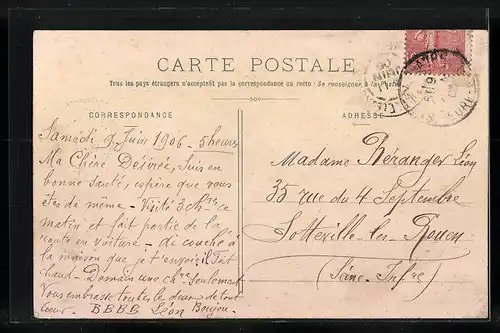 CARTE POSTALE
Tous les pays étrangers n'acceptent pas la correspondance au recto - Se renseigner à la
CORRESPONDANCE
ADRESSE
Samedi 9 Juin 1906 - 5 heures
Ma Chère Désirée, Suis en
bonne santé, espère que vous
êtes de même - Visité 3 ch ce
matin et fait partie de la
route en voiture - ai couché à
la maison que je t'envoie. Fait
chaud - Demain une ch seulement
Vous embrasse toutes les deux de tout
coeur. B.B.B.B. Léon
Madame Béranger Léon
35 rue du 4 Septembre
Sotteville-les-Rouen
(Seine-Infre)